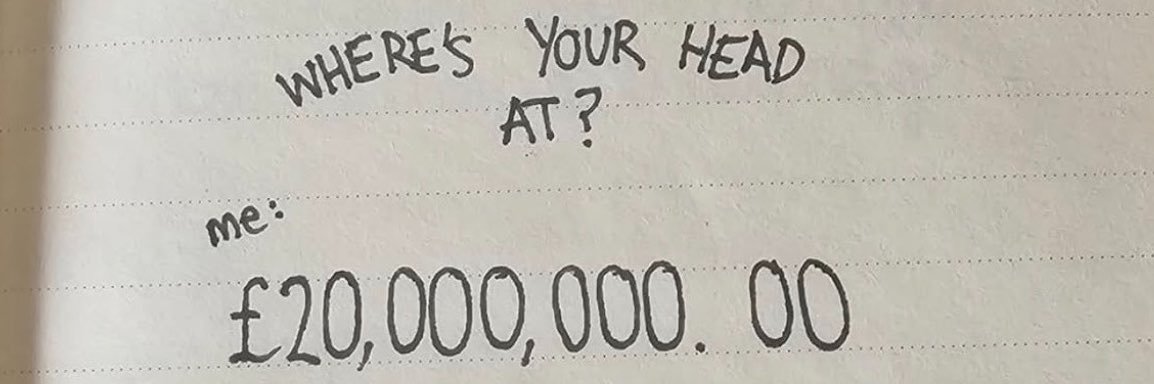 WHERE'S YOUR HEAD
AT?
me:
£20,000,000.00